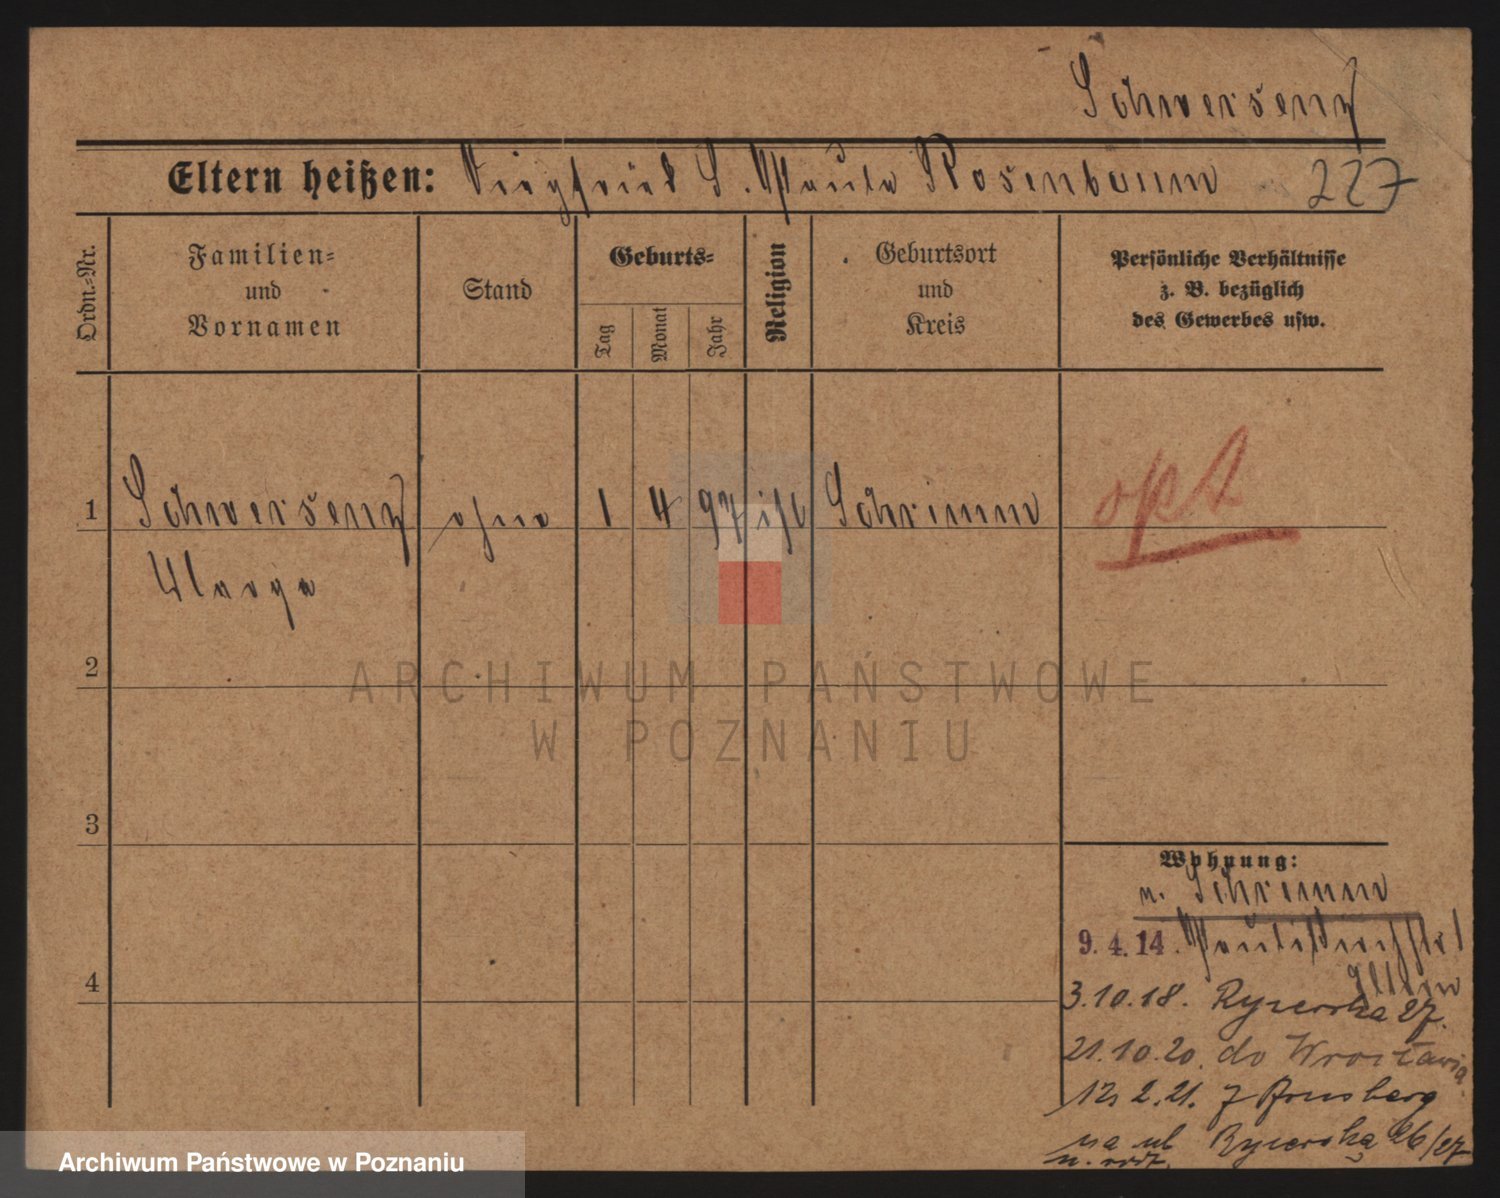 Schwersenz
Eltern heißen: Siegfried S. Paula Rosenbaum 227
Ordn.-Nr.
Familien-
und
Vornamen
Stand
Geburts-
Tag
Monat
Jahr
Religion
Geburtsort
und
Kreis
Persönliche Verhältnisse
z. B. bezüglich
des Gewerbes usw.
1 Schwersenz ohne 1 4 97 isr Schrimm opt
2
3
4
Wohnung:
n. Schrimm
9. 4. 14.
3.10.18. Rycerska 27.
21.10.20. do Wrocławia
12. 2. 21. z Arnsberg
na ul Rycerską 26/27
ARCHIWUM PAŃSTWOWE
W POZNANIU
Archiwum Państwowe w Poznaniu